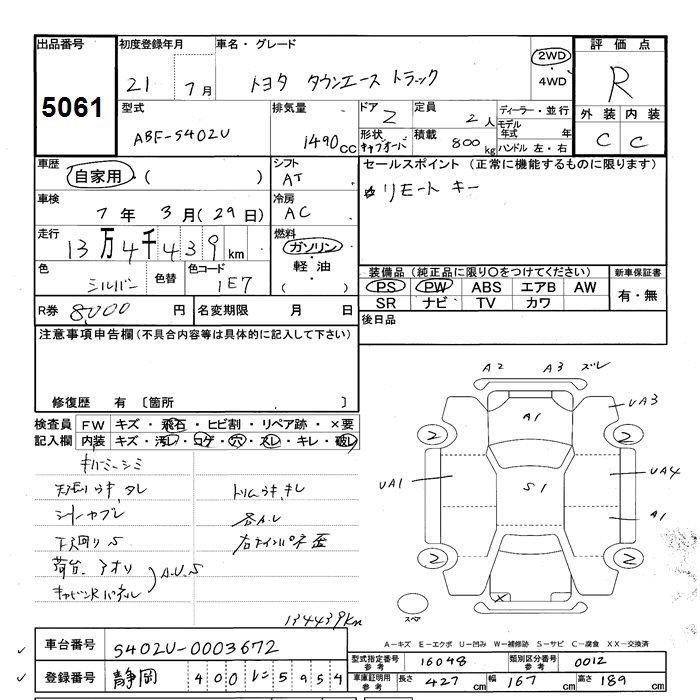 出品番号
5061
初度登録年月
21 7月
車名・グレード
トヨタ タウンエース トラック
2WD
・
4WD
評価点
R
外装 内装
C C
型式
ABF-S402U
排気量
1490cc
ドア 2
形状 キャブオーバ
定員 2人
積載 800kg
ディーラー・並行
モデル
年式 年
ハンドル 左・右
車歴
自家用・( )
シフト
AT
セールスポイント (正常に機能するものに限ります)
リモートキー
車検
7年 3月(29日)
冷房
AC
走行
13万4千439km
燃料
ガソリン・
軽油・
( )
色
シルバー
色替
色コード
1E7
装備品 (純正品に限り○をつけてください)
PS PW ABS エアB AW
SR ナビ TV カワ
新車保証書
有・無
R券 8,000円
名変期限 月 日
後日品
注意事項申告欄(不具合内容等は具体的に記入して下さい)
修復歴 有 〔箇所 〕
検査員 FW キズ・飛石・ヒビ割・リペア跡・×要
記入欄 内装 キズ・汚レ・コゲ・穴・スレ・キレ・破レ
シミ
天張リウキ、タレ
トリムウキ、キレ
シートヤブレ
各A.U
下廻りS
右サイドインパネ歪
荷台、アオリ
キャビンRパネル
A.U.S
134439km
A2 A3 ズレ
A1
UA3
2 2
UA1
S1
UA4
A1
2 2
X
スペア
A-キズ E-エクボ U-凹み W-補修跡 S-サビ C-腐食 XX-交換済
車台番号 S402U-0003672
型式指定番号 参考 16048
類別区分番号 参考 0012
登録番号 静岡 400 に 5954
車庫証明用 参考 長さ 427cm 幅 167cm 高さ 189cm